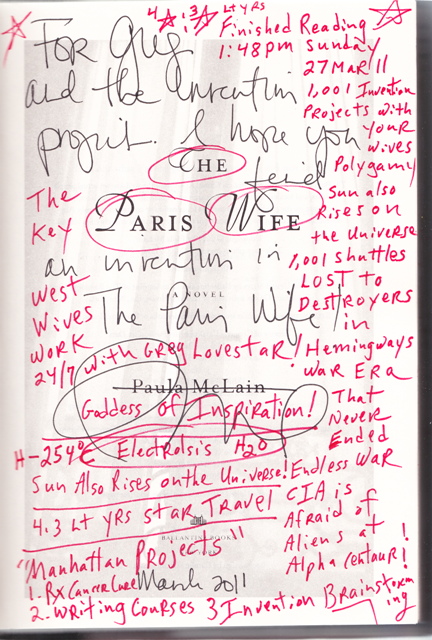 4 ☆ : 3 ☆ Lt yrs
Finished Reading
1:48pm Sunday
27 Mar 11
1,001 Invention
Projects with
your
wives
Polygamy
Sun also
Rises on
the Universe
1,001 shuttles
LOST TO
DESTROYERS
in
Hemingways
WAR ERA
That
Never
Ended
Endless War
CIA is
Afraid of
Aliens at
Alpha Centauri!
For Greg
and the invention
project. I hope you
find
an invention in
The Paris Wife!
THE
PARIS WIFE
A NOVEL
Paula McLain
BALLANTINE BOOKS
March 2011
The
Key
West
Wives
Work
24/7 with Greg Lovestar!
Goddess of Inspiration!
H -254°C Electrolsis H2O
Sun Also Rises on the Universe!
4.3 Lt yrs star Travel
"Manhattan Projects"
1. Rx Cancer Cure
2. Writing Courses 3 Invention Brainstorm
ing